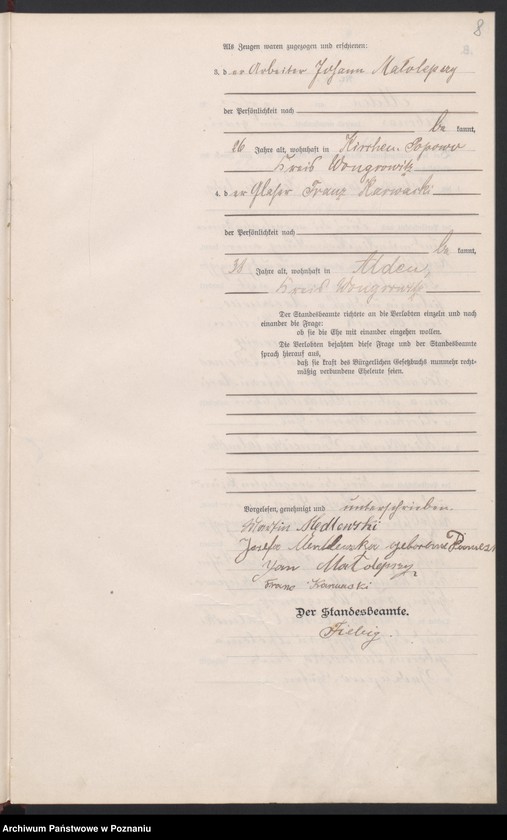 8
Als Zeugen waren zugezogen und erschienen:
3. d er Arbeiter Johann Małolepszy
der Persönlichkeit nach
be kannt,
26 Jahre alt, wohnhaft in Kirchen Popowo
Kreis Wongrowitz
4. d er Glaser Franz Karwacki
der Persönlichkeit nach
be kannt,
31 Jahre alt, wohnhaft in
Kreis Wongrowitz
Der Standesbeamte richtete an die Verlobten einzeln und nach
einander die Frage:
ob sie die Ehe mit einander eingehen wollen.
Die Verlobten bejahten diese Frage und der Standesbeamte
sprach hierauf aus,
daß sie kraft des Bürgerlichen Gesetzbuchs nunmehr recht-
mäßig verbundene Eheleute seien.
Vorgelesen, genehmigt und unterschrieben.
Josefa geborene
Jan Małolepszy
Franc
Der Standesbeamte.
Fiebig.
Archiwum Państwowe w Poznaniu